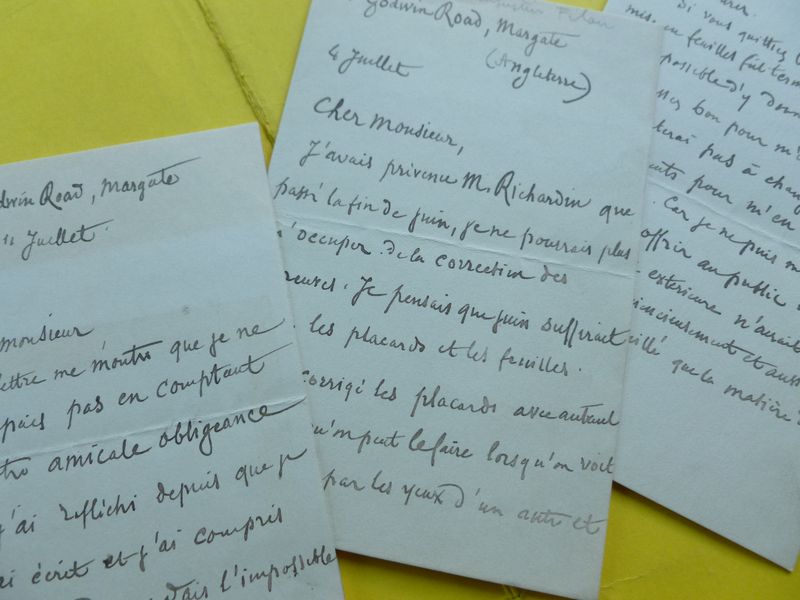 Godwin Road, Margate
11 Juillet.
monsieur
lettre me montre que je ne
pas en comptant
amicale obligeance
j'ai réfléchi depuis que je
ai écrit et j'ai compris
l'impossible
Godwin Road, Margate
(Angleterre)
4 Juillet
Cher Monsieur,
J'avais prévenu M. Richardin que
passé la fin de juin, je ne pourrais plus
m'occuper de la correction des
épreuves. Je pensais que juin suffirait
les placards et les feuilles.
corrigé les placards avec autant
qu'on peut le faire lorsqu'on voit
par les yeux d'un autre et
Si vous quittiez
mes en feuilles fut term
possible d'y donn
bon pour m'
terai pas à chan
pour m'en
Car je ne puis
offrir au public
extérieure n'aurait
consciencieusement et aussi
que la matière